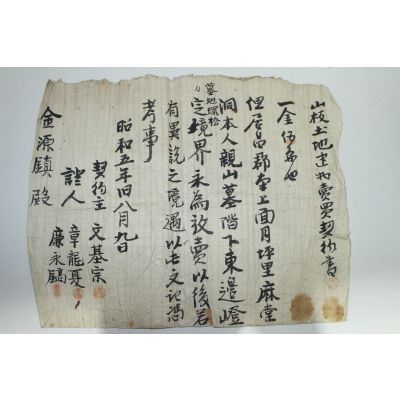 山坂土地建物賣買契約書
一金伍円也
但居昌郡南上面月坪里麻堂
洞本人親山墓階下東邊嶝
墓地環松
定境界永為放賣以後若
有異說之境遇以此文記憑
考事
昭和五年旧八月九日
契約主 文基宗
證人 章龍
廉永鎬
金源鎮 殿